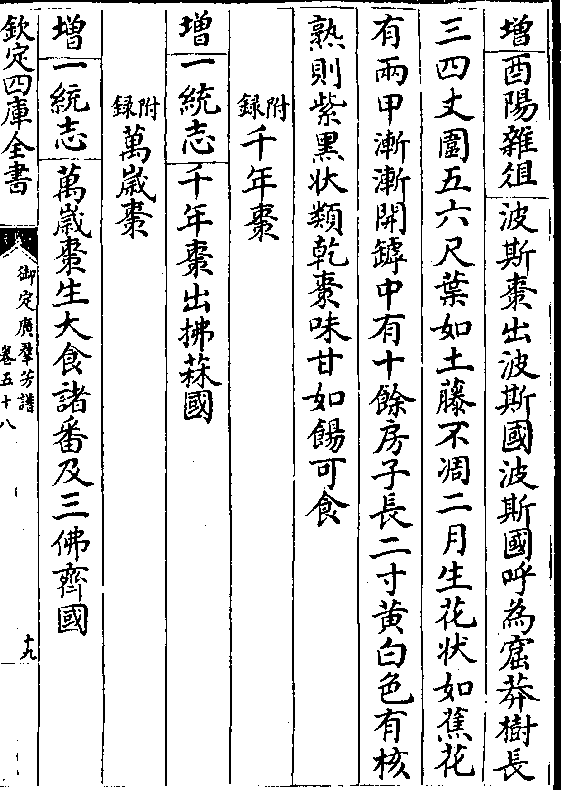 增酉陽雜俎波斯棗出波斯國波斯國呼為窟莽樹長
三四丈圍五六尺葉如土藤不凋二月生花狀如蕉花
有兩甲漸漸開罅中有十餘房子長二寸黃白色有核
熟則紫黑狀類乾棗味甘如餳可食
附録千年棗
增一統志千年棗出拂菻國
附録萬歲棗
增一統志萬歲棗生大食諸番及三佛齊國
欽定四庫全書
御定廣羣芳譜
卷五十八
十九